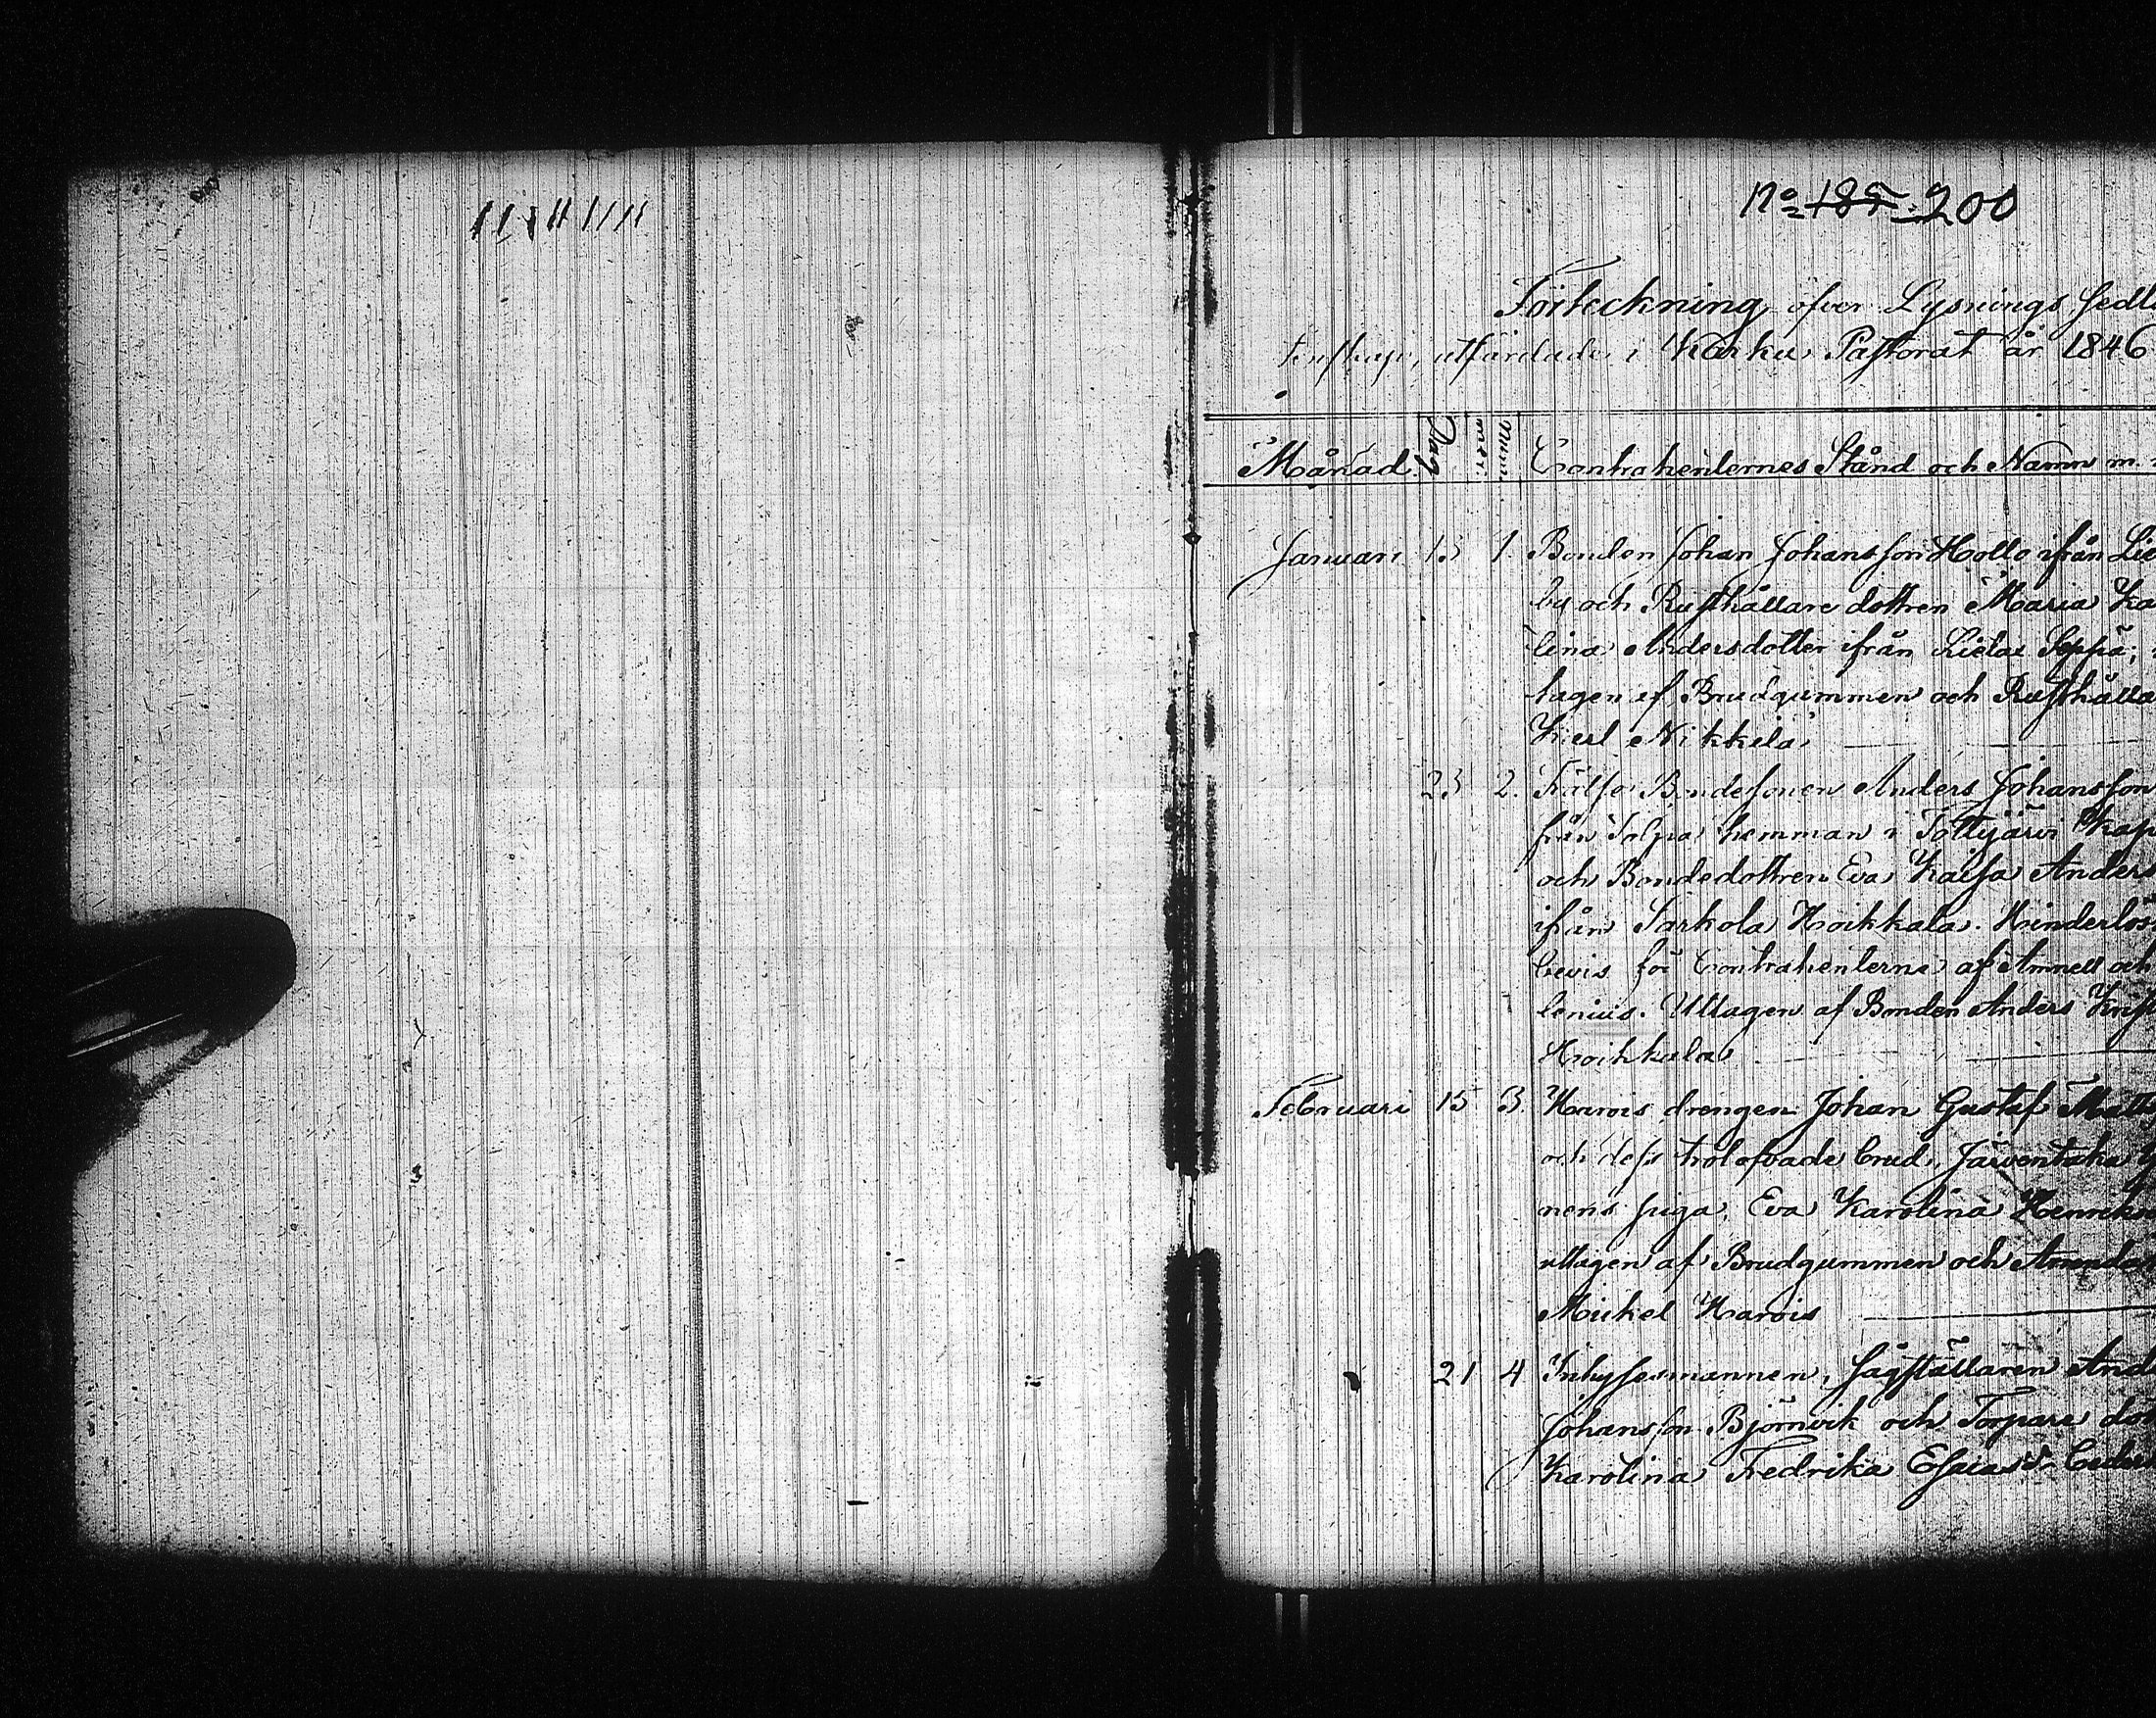 No 185. 200
Förteckning öfver Lysnings Sedl
utfärdade i Karku Pastorat år 1846
Månad. Dag Nummer. Contrahenternes Stånd och Namn m.
Januari 13 1 Bonden Johan Johansson Hollo ifrån
by och Rusthållare dottren Maria Ka
lina Andersdotter ifrån Lielax Seppä;
tagen af Brudgummen och Rusthålla
Karl Nikkilä
23 2. Frälse Bondesonen Anders Johansson
från hemman i Tottijärvi Kap
och Bondedottren Eva Kaisa Anders
ifrån Sarkola Hoikkala. Hinderlös
bevis för Contrahenterne af och
lenius. Uttagen af Bonden Anders
Hoikkala
Februari 15 3. Harois drengen Johan Gustaf Matts
och dess trolofvade brud, Järventaka
nens piga, Eva Karolina Henriks
uttagen af Brudgummen och Arrenda
Mickel Harois
21 4 Inhysesmannen, Sågställaren And
Johansson Björnvik och Torpare do
Karolina Fredrika Esaiasdr Ceder